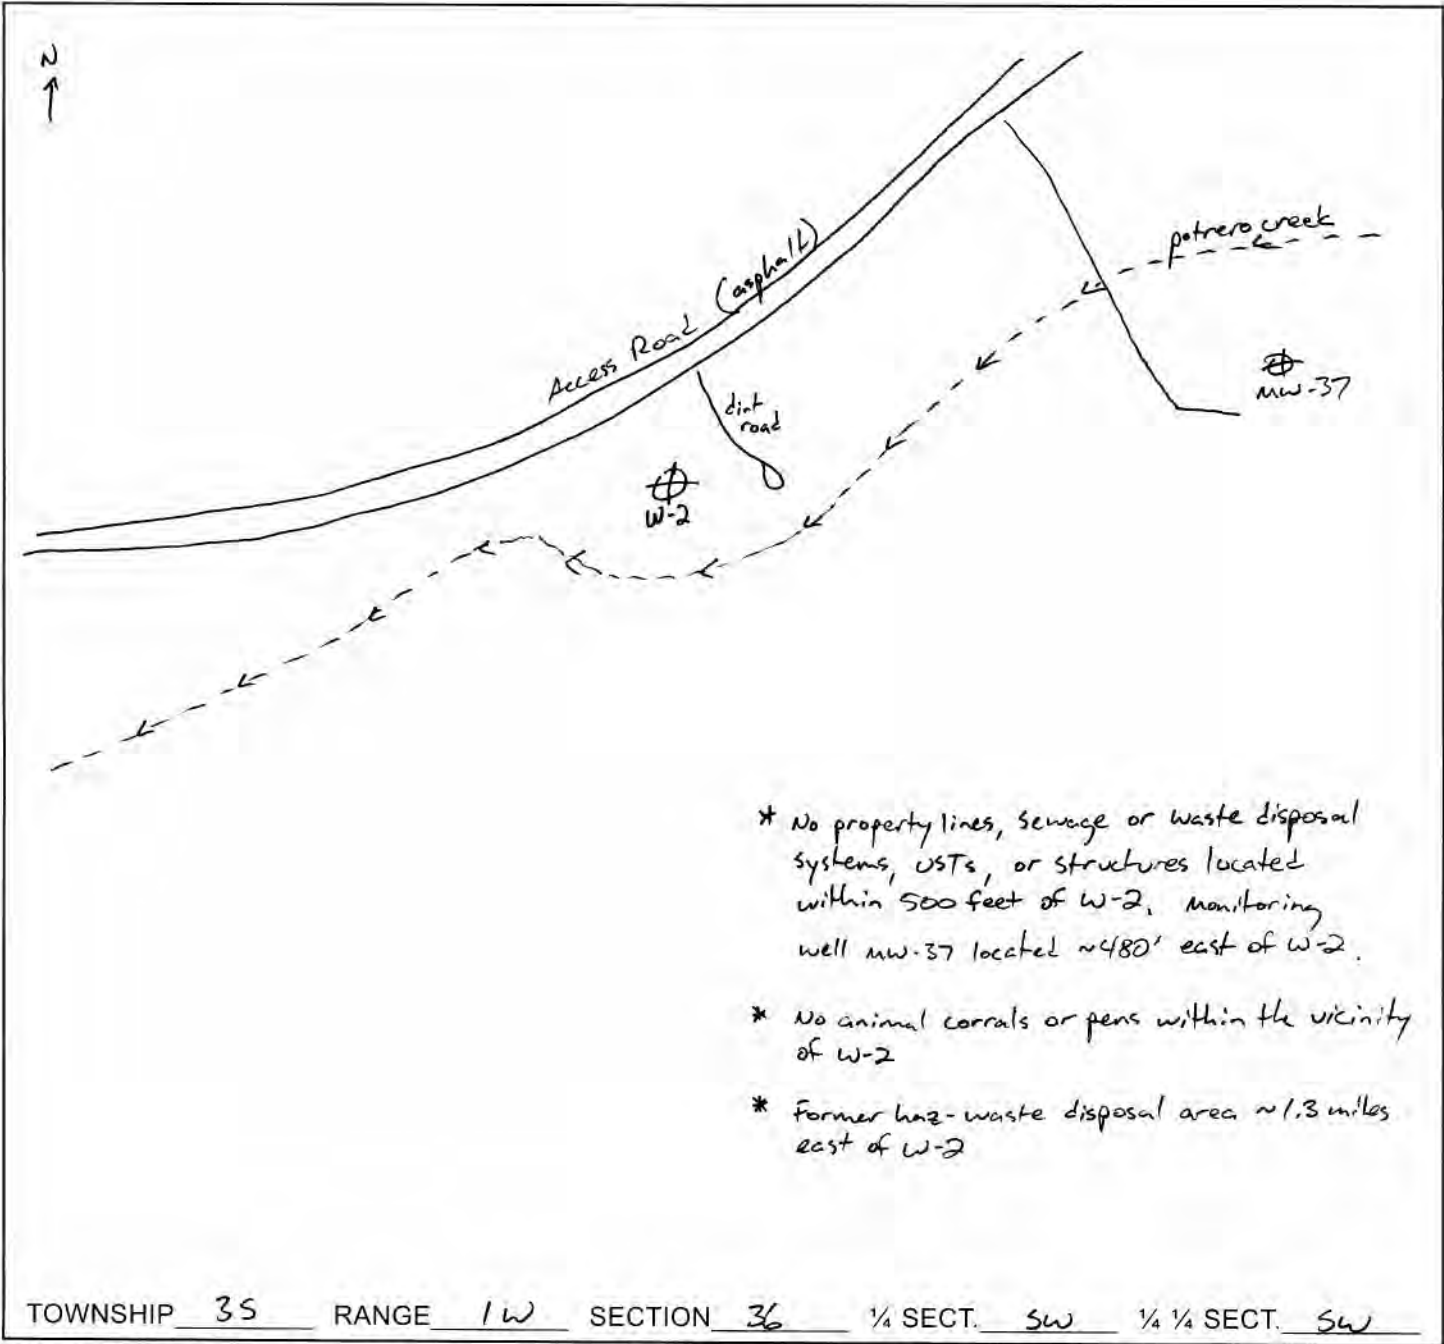 N
potrero creek
Access Road (asphalt)
MW-37
dirt
road
W-2
* No property lines, sewage or waste disposal
systems, USTs, or structures located
within 500 feet of W-2. Monitoring
well MW-37 located ~480' east of W-2.
* No animal corrals or pens within the vicinity
of W-2
* Former haz-waste disposal area ~1.3 miles
east of W-2
TOWNSHIP 3S RANGE 1W SECTION 36 ¼ SECT. SW ¼ ¼ SECT. SW